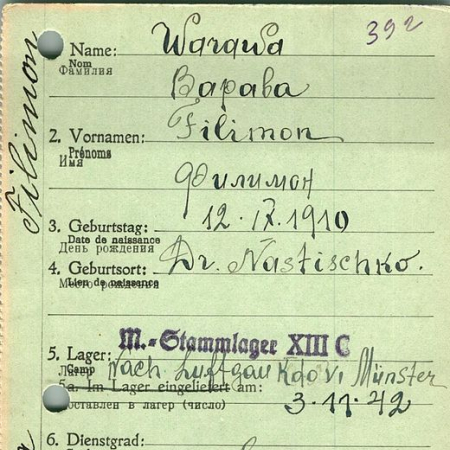 392
Filimon
1. Name: Warawa
Nom
Фамилия
Варава
2. Vornamen: Filimon
Prénoms
Имя
Филимон
3. Geburtstag: 12.IX.1910
Date de naissance
День рождения
4. Geburtsort: Dr. Nastischko.
Lieu de naissance
Место рождения
M.-Stammlager XIII C
5. Lager: Nach Luftgau Kdo VI Münster
Camp
Лагерь
5a. Im Lager eingeliefert am: 3.11.42
Доставлен в лагерь (число)
6. Dienstgrad: